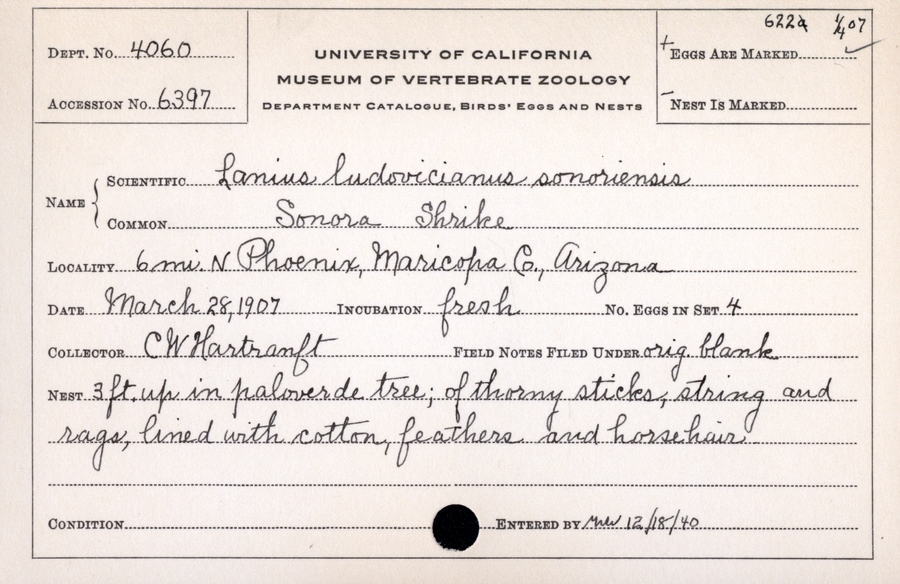 622a 1/4 07
DEPT. No. 4060
UNIVERSITY OF CALIFORNIA
+ EGGS ARE MARKED
MUSEUM OF VERTEBRATE ZOOLOGY
ACCESSION No. 6397
DEPARTMENT CATALOGUE, BIRDS' EGGS AND NESTS
- NEST IS MARKED
NAME { SCIENTIFIC Lanius ludovicianus sonoriensis
COMMON Sonora Shrike
LOCALITY 6 mi. N Phoenix, Maricopa Co., Arizona
DATE March 28, 1907 INCUBATION fresh No. EGGS IN SET 4
COLLECTOR C W Hartranft FIELD NOTES FILED UNDER orig. blank
NEST 3 ft. up in paloverde tree; of thorny sticks, string and
rags, lined with cotton, feathers and horsehair
CONDITION ENTERED BY 12/18/40